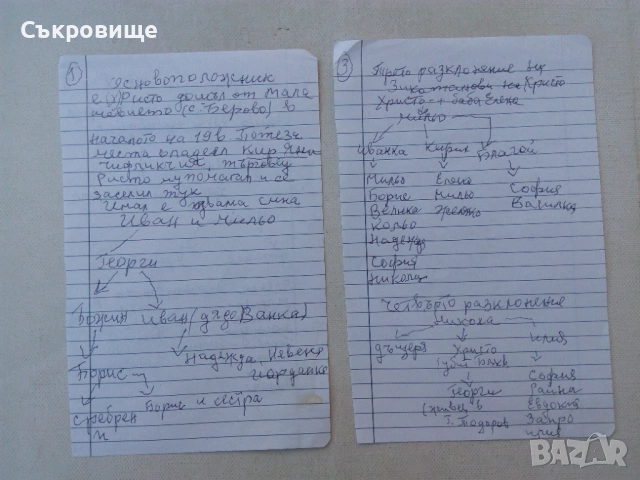 Съкровище
1
Основоположник
е (Х)Ристо дошъл от Мале
шевието (с. Берово) в
началото на 19 в. Потези
места владеел Кир Яни
чифликчия търговец
Ристо му помагал и се
заселил тук
Имал е двама сина
Иван и Мильо
Георги
Божин Иван (дядо Ванка)
Борис Надежда, Невена
Йорданка
Борис и сестра
Сребрен
3
Трето разклонение на
Христо
Христо + баба Елена
Мильо
Иванка Кирил Благой
Мильо Елена София
Борис Мильо Василка
Велика
Кольо
Надежд
София
Никола
Четвърто разклонение
Никола
дъщеря Христо Илия
София
Георги Райна
(живее в Евдокия
Г. Тодоров Запро
BAZAR